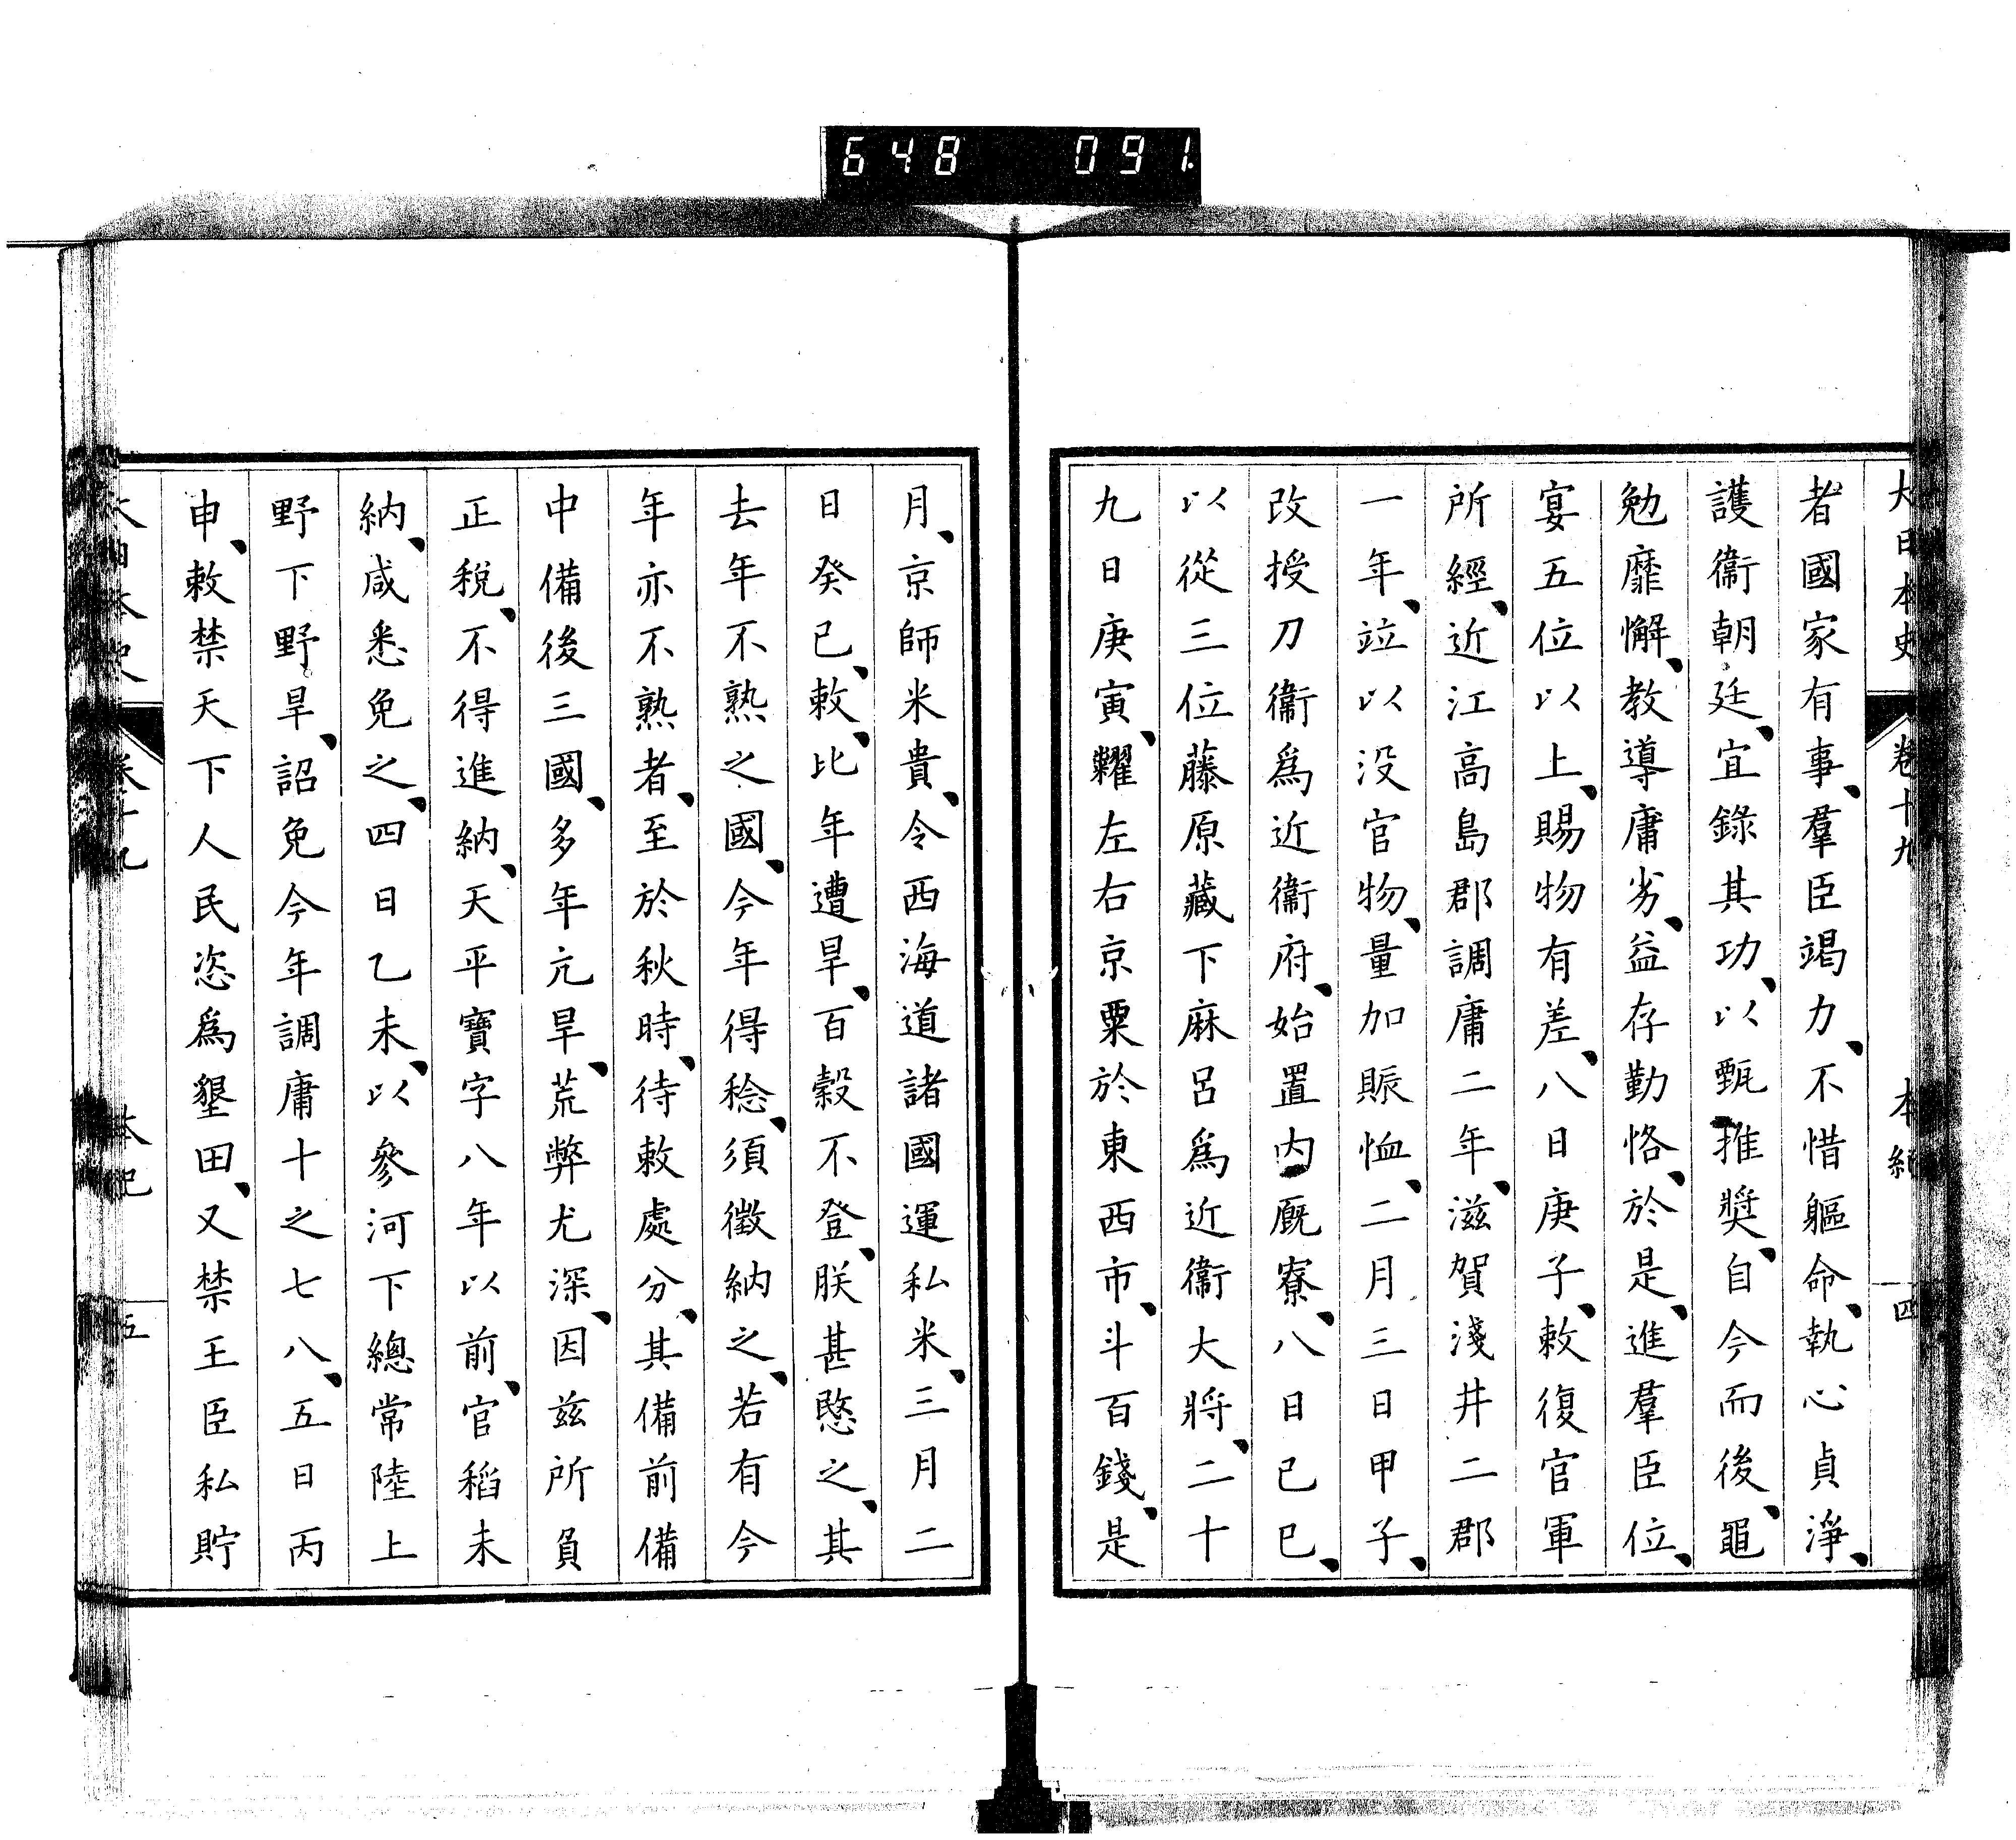 648 091
大日本史 卷十九 本紀 四
者國家有事、羣臣竭力、不惜軀命、執心貞淨、
護衞朝廷、宜錄其功、以甄推奬、自今而後、黽
勉靡懈、教導庸劣、益存勤恪、於是、進羣臣位、
宴五位以上、賜物有差、八日庚子、敕復官軍
所經、近江高島郡調庸二年、滋賀淺井二郡
一年、竝以没官物、量加賑恤、二月三日甲子、
改授刀衞爲近衞府、始置内厩寮、八日己巳、
以從三位藤原藏下麻呂爲近衞大將、二十
九日庚寅、糶左右京粟於東西市、斗百錢、是
月、京師米貴、令西海道諸國運私米、三月二
日癸巳、敕、比年遭旱、百穀不登、朕甚愍之、其
去年不熟之國、今年得稔、須徵納之、若有今
年亦不熟者、至於秋時、待敕處分、其備前備
中備後三國、多年亢旱、荒弊尤深、因茲所負
正稅、不得進納、天平寶字八年以前、官稻未
納、咸悉免之、四日乙未、以參河下總常陸上
野下野旱、詔免今年調庸十之七八、五日丙
申、敕禁天下人民恣爲墾田、又禁王臣私貯
大日本史 卷十九 本紀 五